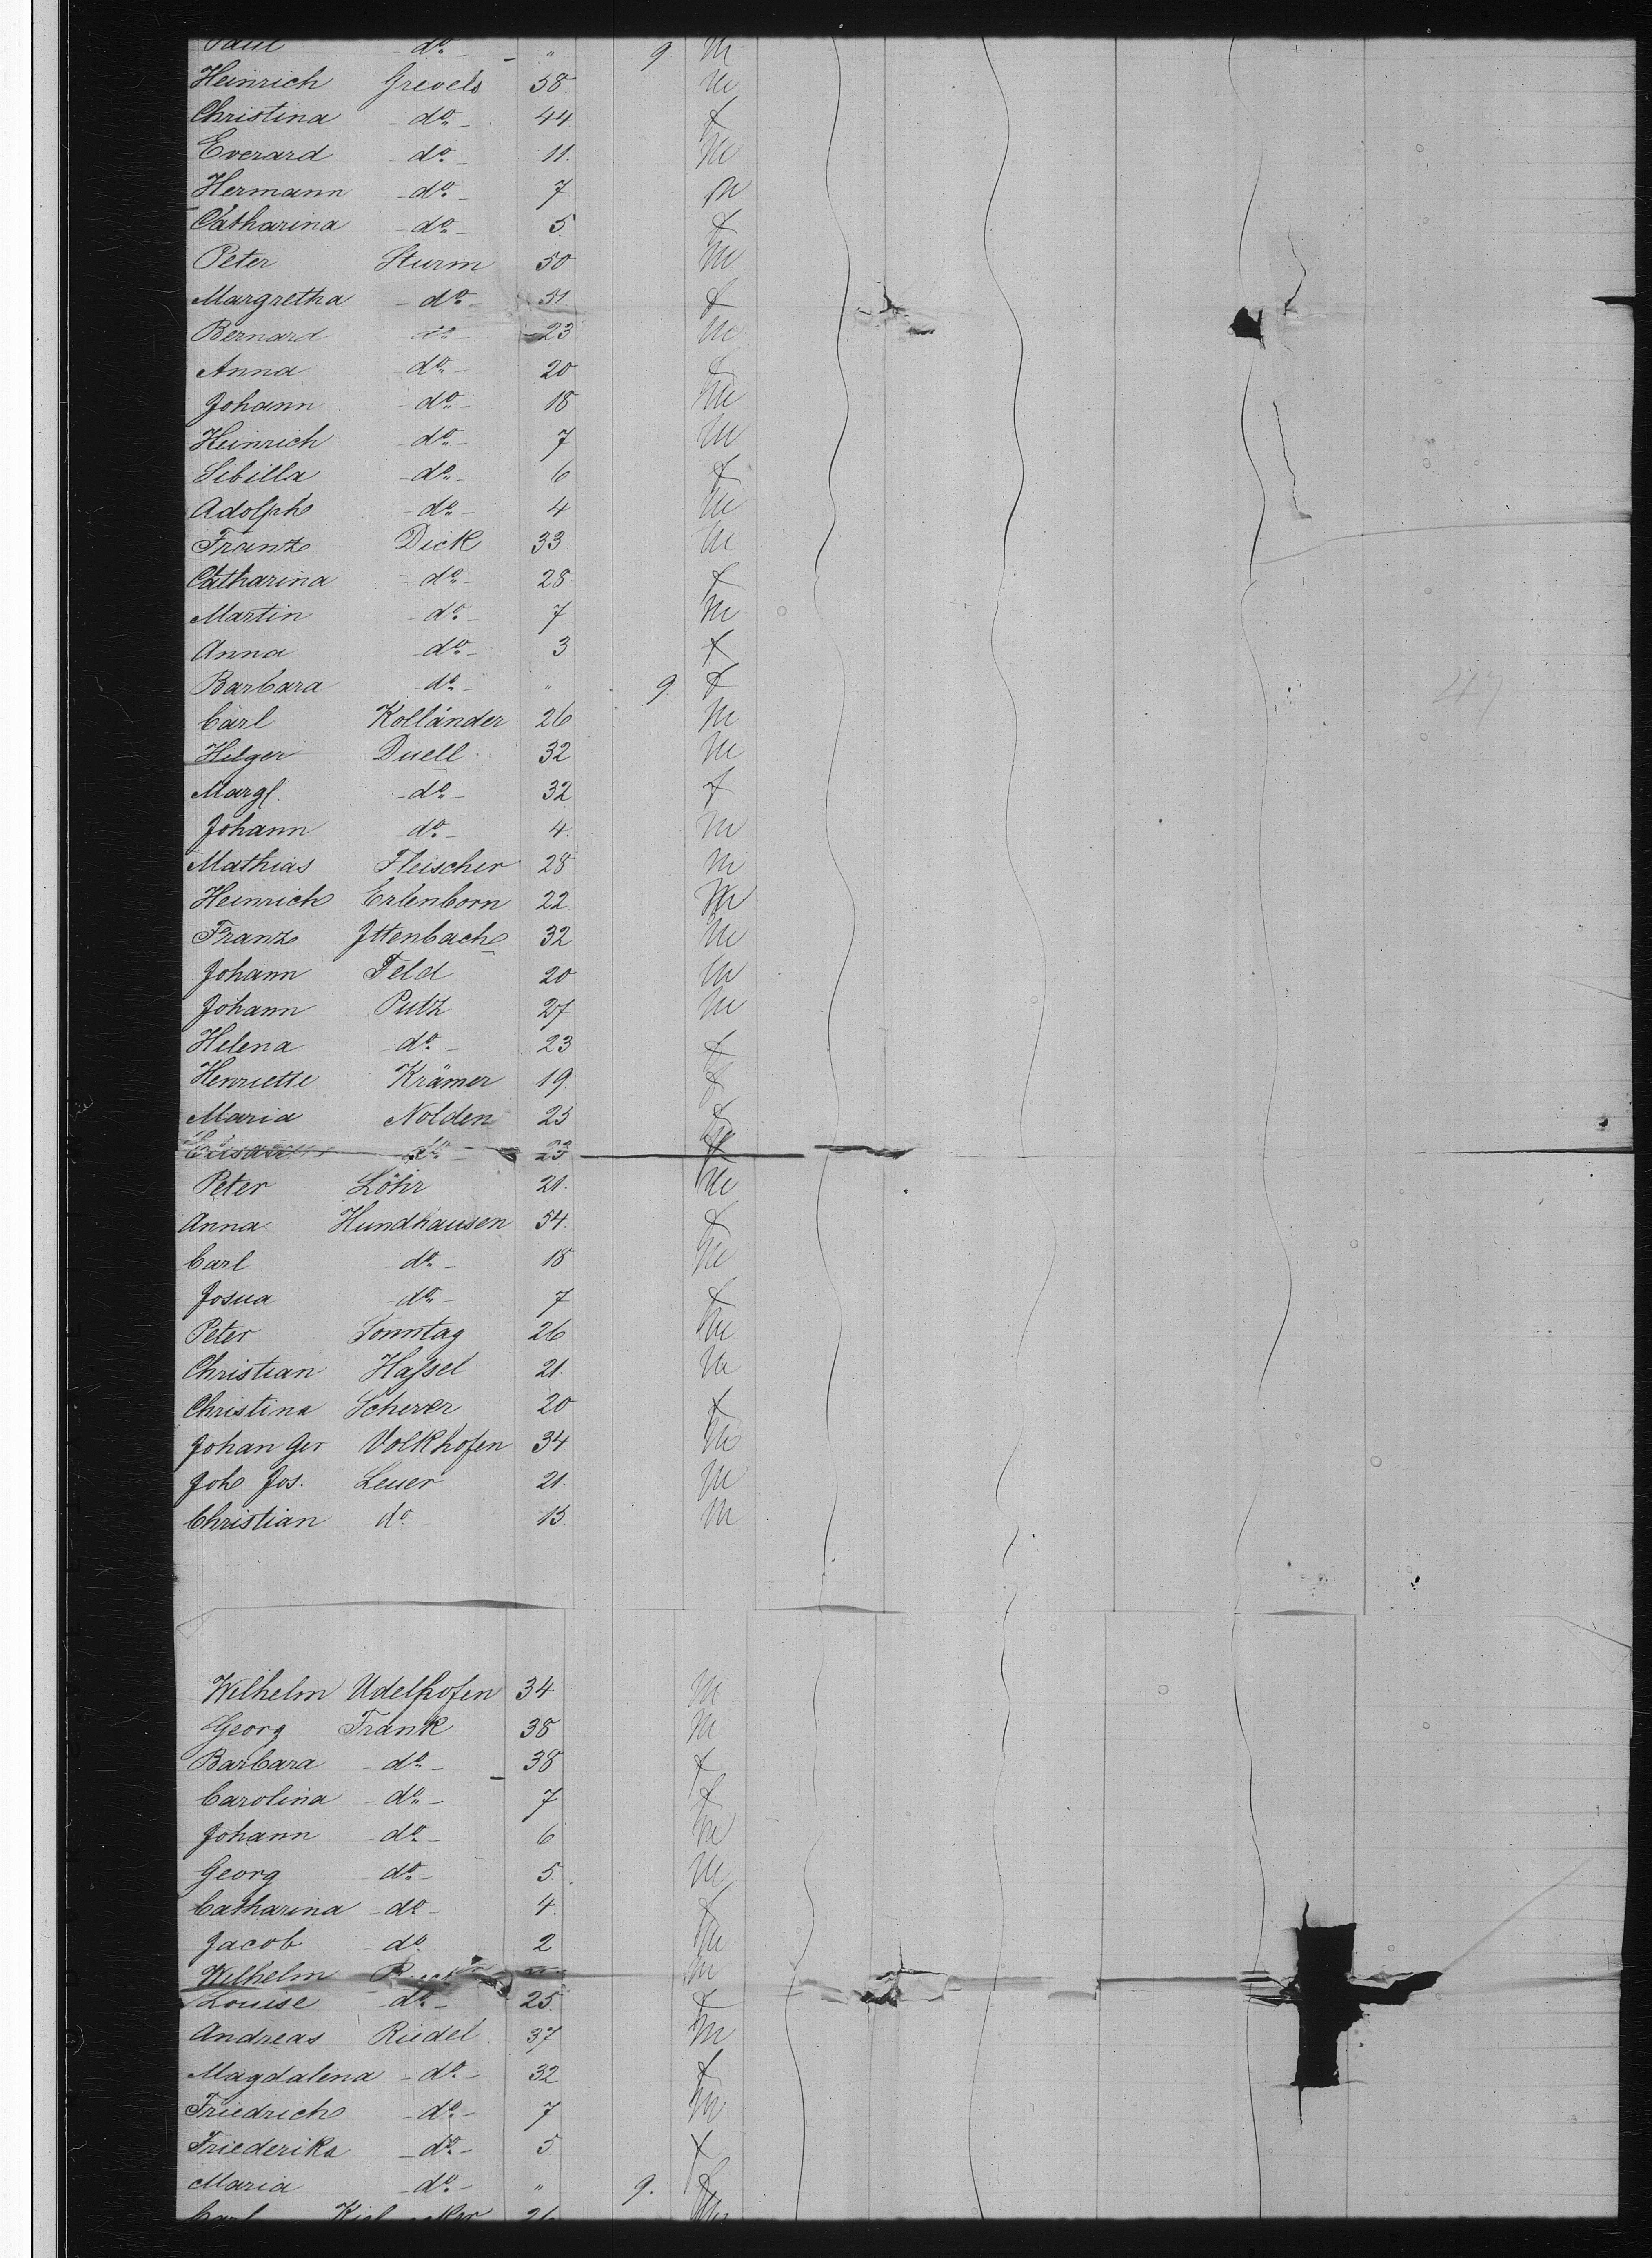 Paul -do- " 9 m
Heinrich Grevels 38 m
Christina -do- 44 f
Everard -do- 11. m
Hermann -do- 7 m
Catharina -do- 5 f
Peter Sturm 50 m
Margretha -do- 51. f
Bernard -do- 23 m
Anna -do- 20 f
Johann -do- 18 m
Heinrich -do- 7 m
Sibilla -do- 6 f
Adolph -do- 4 m
Franz Dick 33 m
Catharina -do- 28 f
Martin -do- 7 m
Anna -do- 3 f
Barbara -do- " 9 f
Carl Kolländer 26 m
Hilger Duell 32 m
Margl. -do- 32 f
Johann -do- 4. m
Mathias Fleischer 28 m
Heinrich Erlenborn 22 m
Franz Ittenbach 32 m
Johann Feld 20 m
Johann Putz 27 m
Helena -do- 23 f
Henriette Krämer 19. f
Maria Nolden 25 f
do 23
Peter Löhr 21. m
Anna Hundhausen 54. f
Carl do- 18 m
Josua -do- 7 f
Peter Sonntag 26 m
Christian Hassel 21. m
Christina Scherer 20 f
Johan Ger Volkhofen 34 m
Joh Jos. Leuer 21. m
Christian do 15 m
Wilhelm Udelhofen 34 m
Georg Frank 38 m
Barbara -do- 38 f
Carolina -do- 7 f
Johann -do- 6 m
Georg do- 5. m
Catharina -do- 4. f
Jacob -do 2 m
Wilhelm m
Louise -do- 25 f
Andreas Riedel 37 m
Magdalena -do- 32 f
Friedrich -do- 7 m
Friederika -do- 5 f
Maria -do- " 9. f
Carl